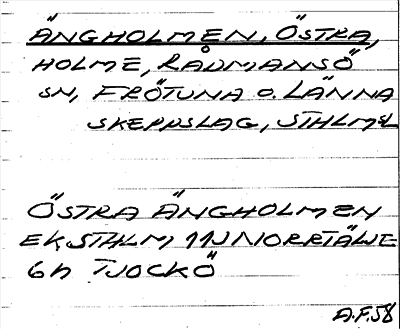 ÄNGHOLMEN, ÖSTRA,
HOLME, RÅDMANSÖ
SN, FRÖTUNA O. LÄNNA
SKEPPSLAG, STHLMSL
ÖSTRA ÄNGHOLMEN
EK STHLM 11J NORRTÄLJE
6h TJOCKÖ
A.F.58